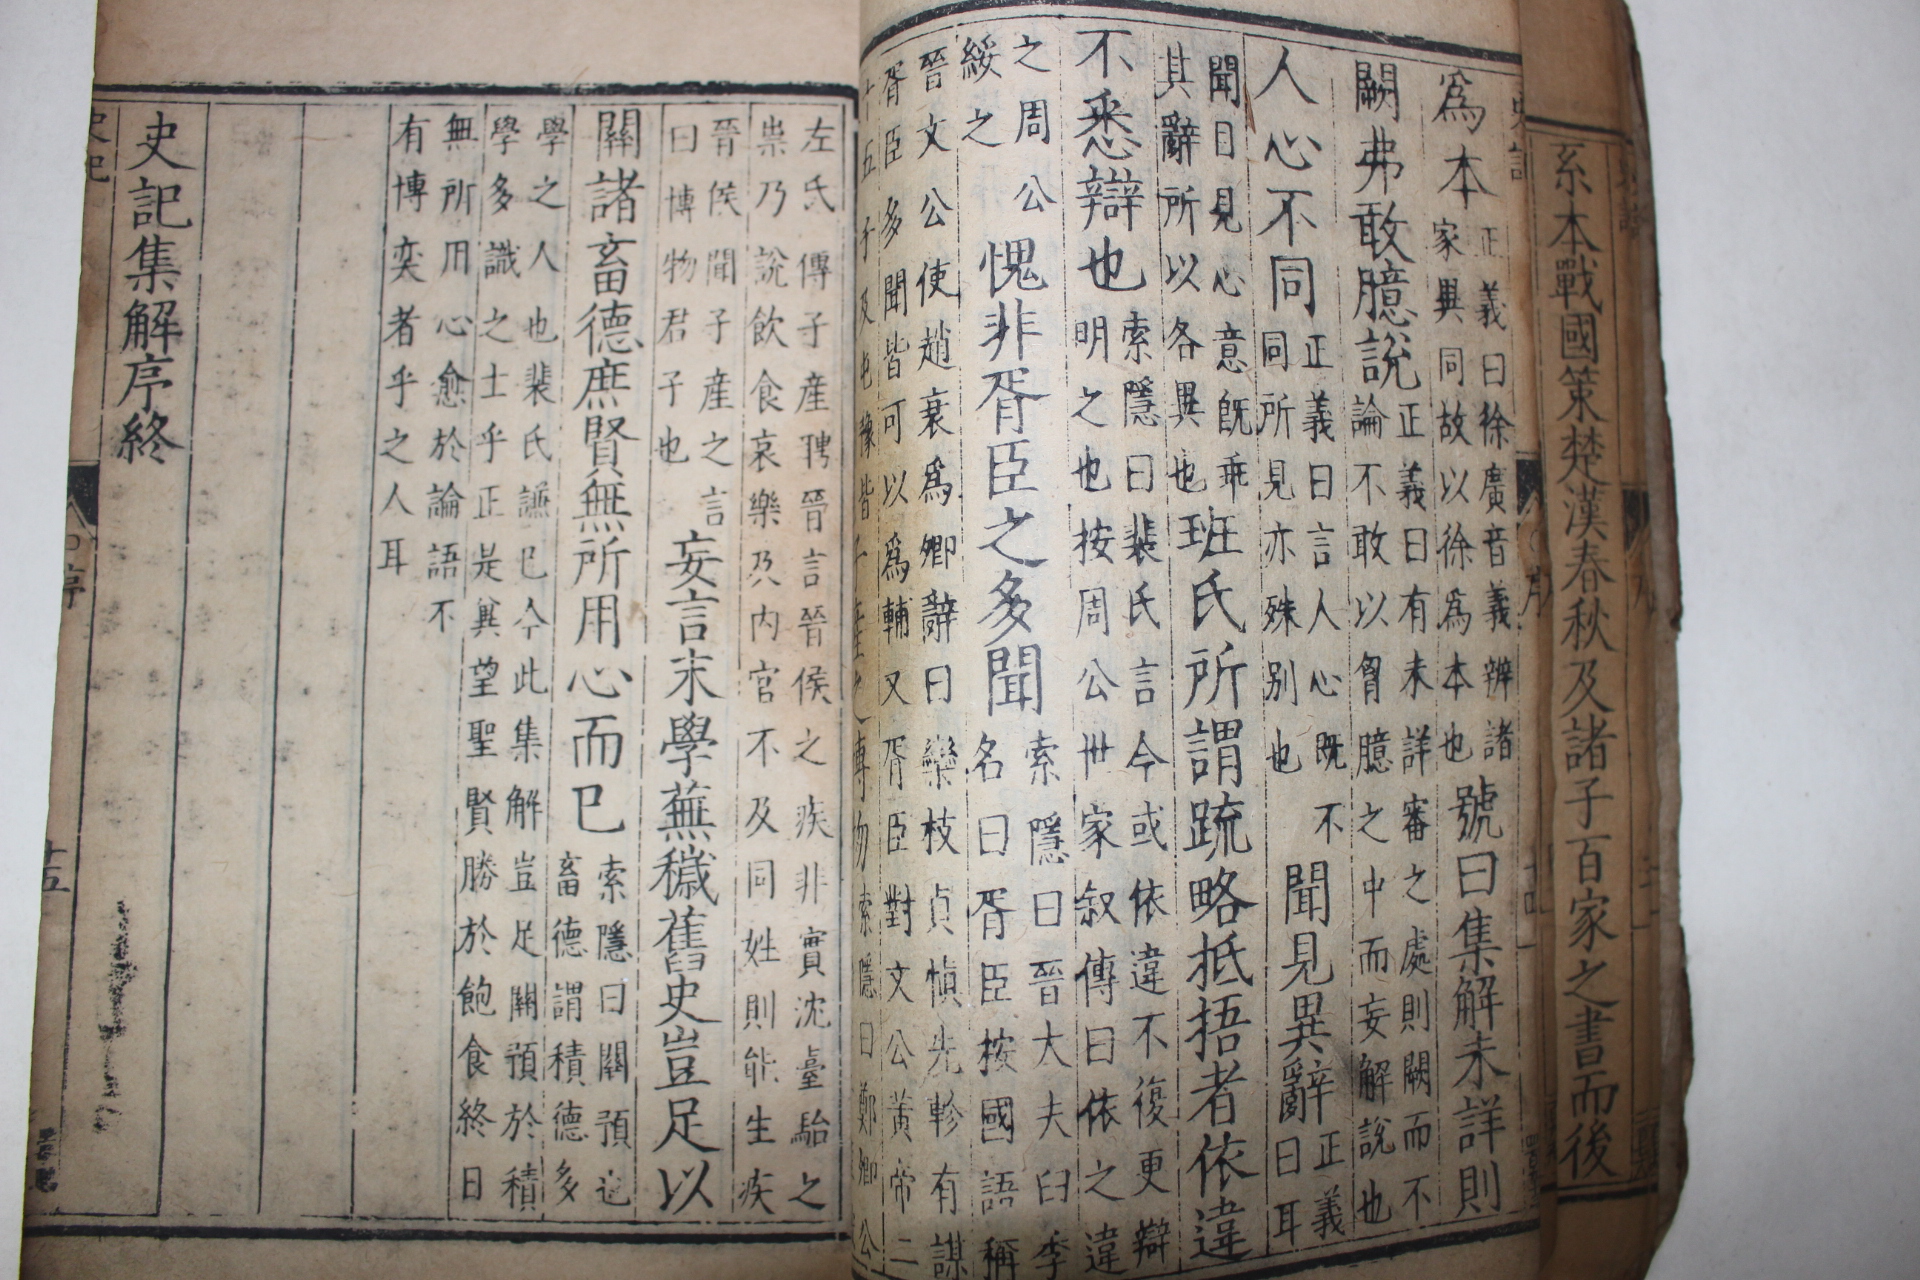 系本戰國策楚漢春秋及諸子百家之書而後
爲本
正義曰徐廣音義辨諸
家異同故以徐爲本也
號曰集解未詳則
闕弗敢臆說
正義曰有未詳審之處則闕而不
論不敢以胷臆之中而妄解說也
人心不同
正義曰言人心既不
同所見亦殊別也
聞見異辭
正義
曰耳
聞目見心意旣乖
其辭所以各異也
班氏所謂䟽略抵捂者依違
不悉辯也
索隱曰裴氏言今或依違不復更辯
明之也按周公世家叙傳曰依之違
之周公
綏之
愧非胥臣之多聞
索隱曰晉大夫臼季
名曰胥臣按國語稱
晉文公使趙衰爲卿辭曰欒枝貞愼先軫有謀
胥臣多聞皆可以爲輔又胥臣對文公黃帝二
十五子及屯豫皆
子產之博物
索隱曰鄭卿公
左氏傳子產聘晉言晉侯之疾非實沈臺駘之
祟乃說飲食哀樂及内官不及同姓則能生疾
晉侯聞子產之言
曰博物君子也
妄言末學蕪穢舊史豈足以
關諸畜德庶賢無所用心而巳
索隱曰關預也
畜德謂積德多
學之人也裴氏謙巳今此集解豈足關預於積
學多識之士乎正是兾望聖賢勝於飽食終日
無所用心愈於論語不
有博奕者乎之人耳
史記集解序終
史記
序
十五